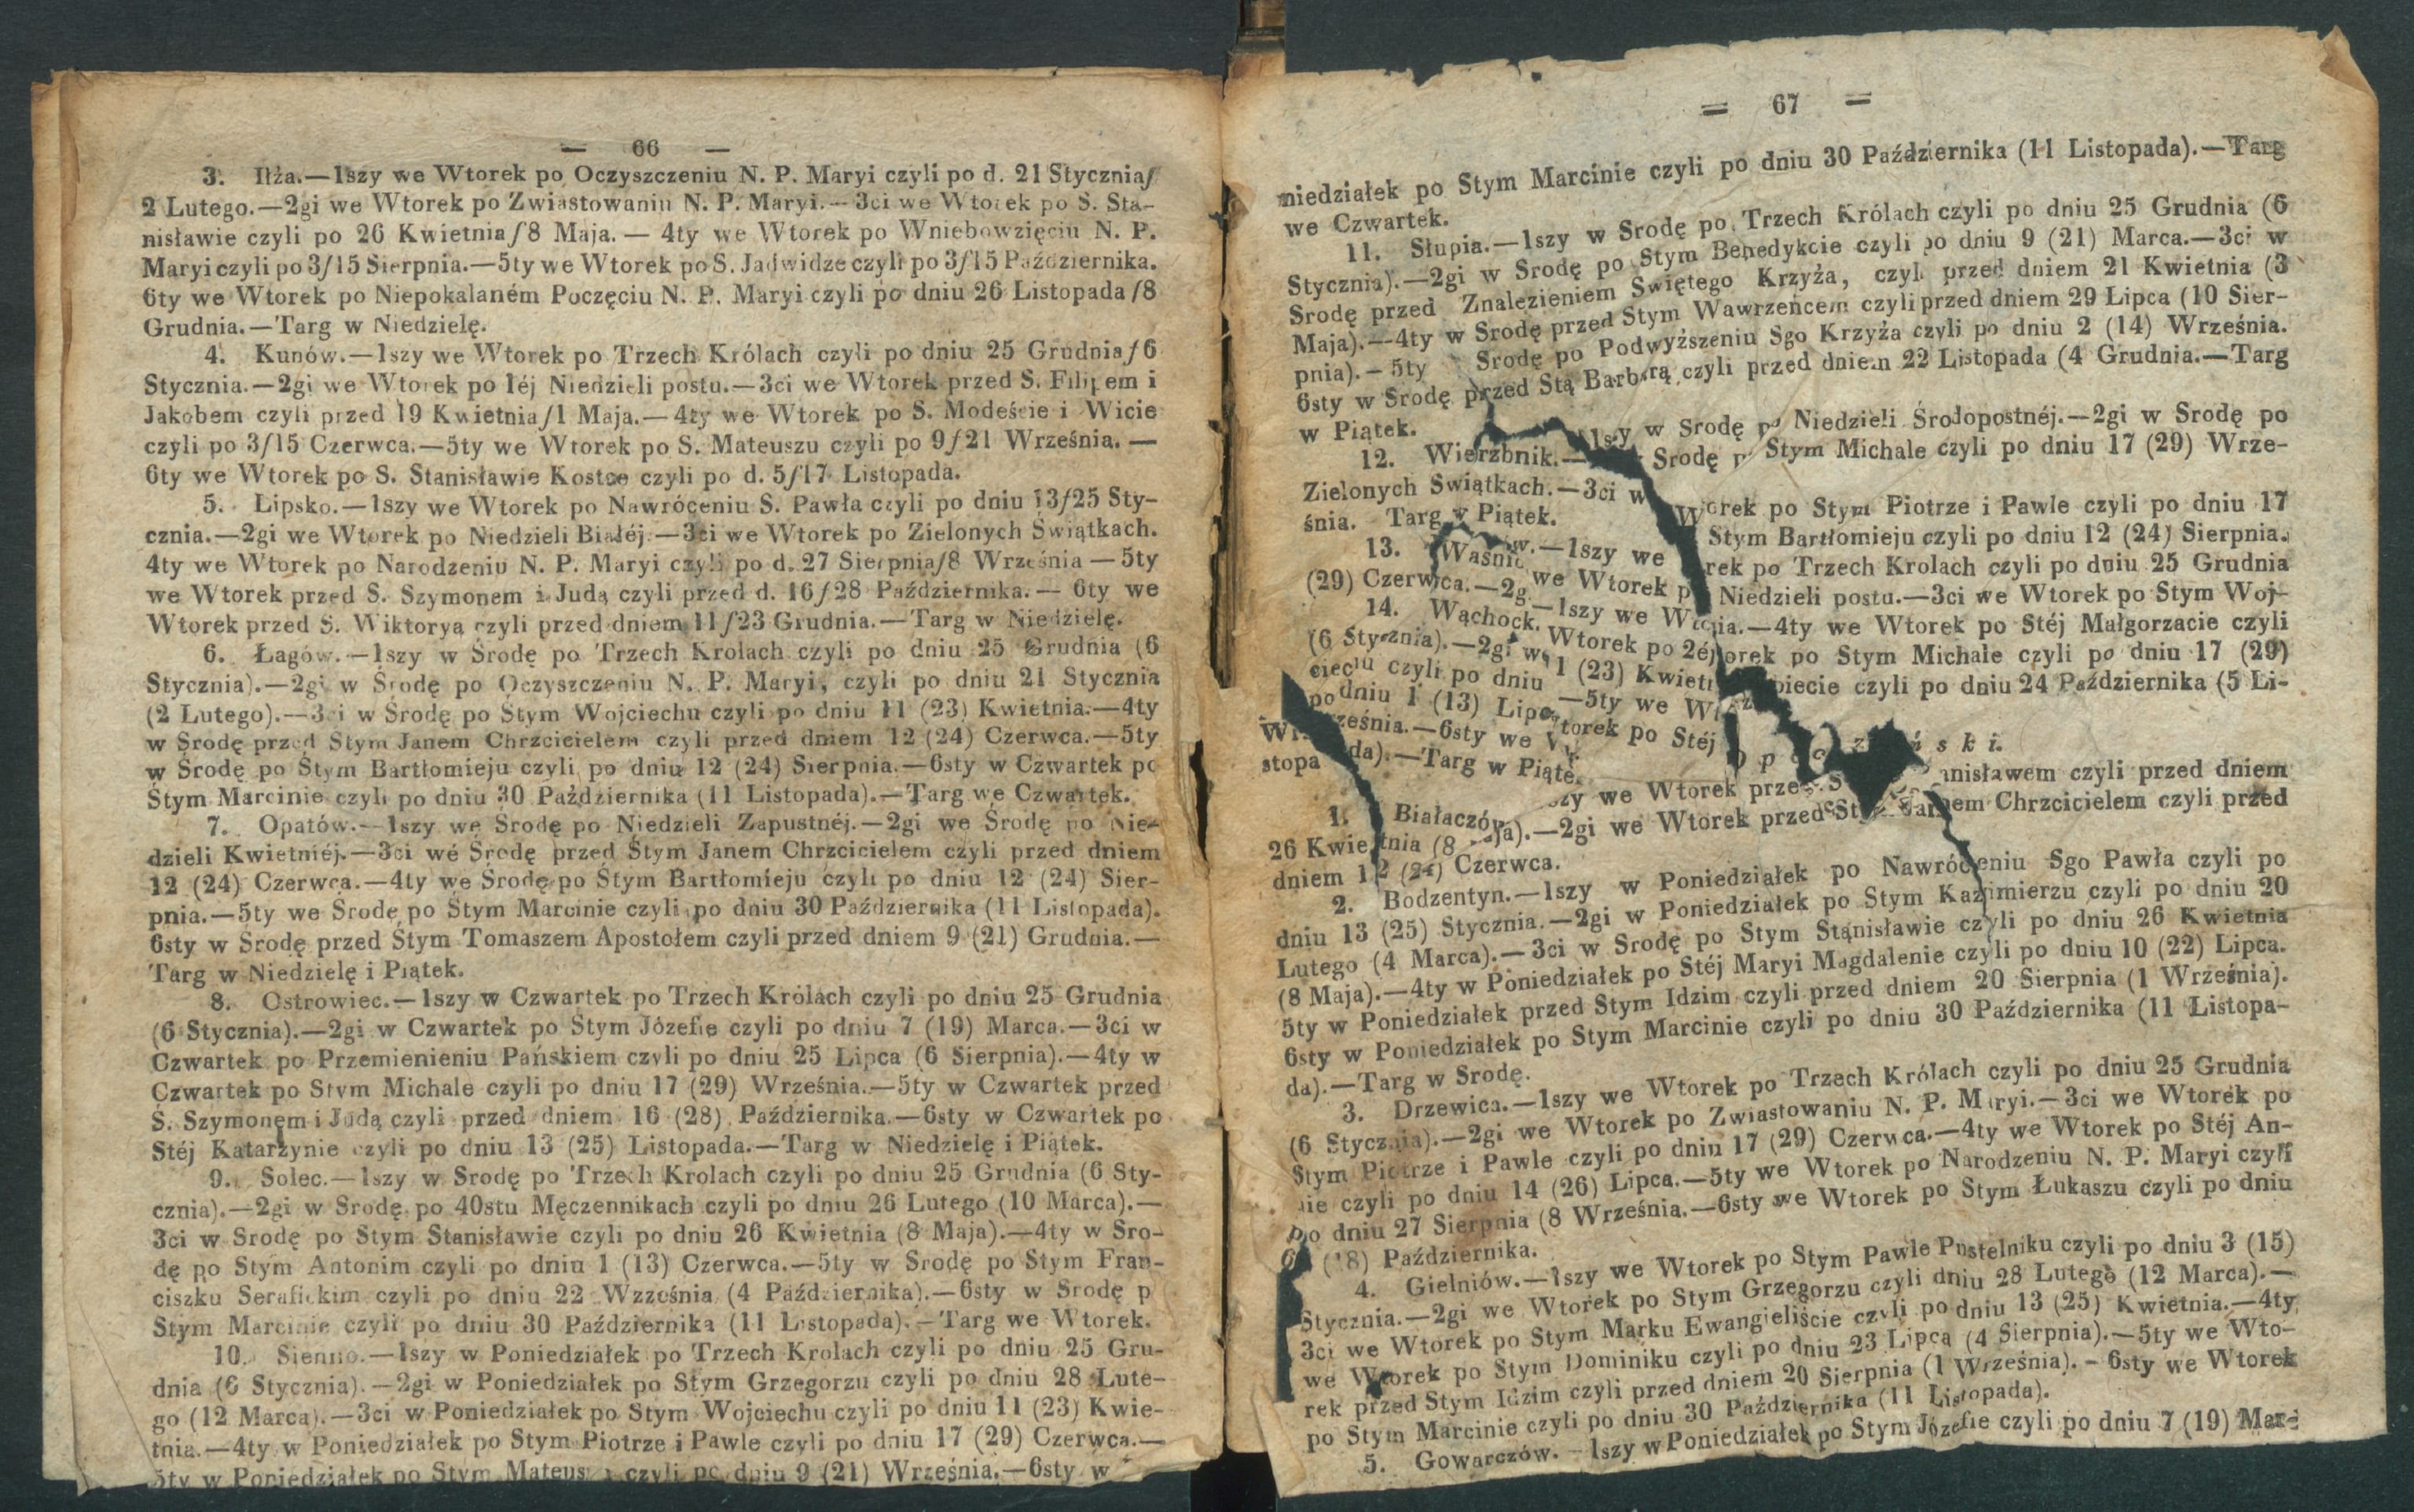 — 66 —
3. Iłża.—1szy we Wtorek po Oczyszczeniu N. P. Maryi czyli po d. 21 Stycznia/
2 Lutego.—2gi we Wtorek po Zwiastowaniu N. P. Maryi.—3ci we Wtorek po S. Sta-
nisławie czyli po 26 Kwietnia/8 Maja.—4ty we Wtorek po Wniebowzięciu N. P.
Maryi czyli po 3/15 Sierpnia.—5ty we Wtorek po S. Jadwidze czyli po 3/15 Października.
6ty we Wtorek po Niepokalaném Poczęciu N. P. Maryi czyli po dniu 26 Listopada/8
Grudnia.—Targ w Niedzielę.
4. Kunów.—1szy we Wtorek po Trzech Królach czyli po dniu 25 Grudnia/6
Stycznia.—2gi we Wtorek po 1éj Niedzieli postu.—3ci we Wtorek przed S. Filipem i
Jakobem czyli przed 19 Kwietnia/1 Maja.—4ty we Wtorek po S. Modeście i Wicie
czyli po 3/15 Czerwca.—5ty we Wtorek po S. Mateuszu czyli po 9/21 Września.—
6ty we Wtorek po S. Stanisławie Kostce czyli po d. 5/17 Listopada.
5. Lipsko.—1szy we Wtorek po Nawróceniu S. Pawła czyli po dniu 13/25 Sty-
cznia.—2gi we Wtorek po Niedzieli Białéj.—3ci we Wtorek po Zielonych Swiątkach.
4ty we Wtorek po Narodzeniu N. P. Maryi czyli po d. 27 Sierpnia/8 Września—5ty
we Wtorek przed S. Szymonem i Judą czyli przed d. 16/28 Października.—6ty we
Wtorek przed S. Wiktoryą czyli przed dniem 11/23 Grudnia.—Targ w Niedzielę.
6. Łagów.—1szy w Srodę po Trzech Krolach czyli po dniu 25 Grudnia (6
Stycznia).—2gi w Srodę po Oczyszczeniu N. P. Maryi, czyli po dniu 21 Stycznia
(2 Lutego).—3ci w Srodę po Stym Wojciechu czyli po dniu 11 (23) Kwietnia.—4ty
w Srodę przed Stym Janem Chrzcicielem czyli przed dniem 12 (24) Czerwca.—5ty
w Srodę po Stym Bartłomieju czyli po dniu 12 (24) Sierpnia.—6sty w Czwartek po
Stym Marcinie czyli po dniu 30 Października (11 Listopada).—Targ we Czwartek.
7. Opatów.—1szy we Srodę po Niedzieli Zapustnéj.—2gi we Srodę po Nie-
dzieli Kwietniéj.—3ci wé Srodę przed Stym Janem Chrzcicielem czyli przed dniem
12 (24) Czerwca.—4ty we Srodę po Stym Bartłomieju czyli po dniu 12 (24) Sier-
pnia.—5ty we Srodę po Stym Marcinie czyli po dniu 30 Października (11 Listopada).
6sty w Srodę przed Stym Tomaszem Apostołem czyli przed dniem 9 (21) Grudnia.—
Targ w Niedzielę i Piątek.
8. Ostrowiec.—1szy w Czwartek po Trzech Królach czyli po dniu 25 Grudnia
(6 Stycznia).—2gi w Czwartek po Stym Józefie czyli po dniu 7 (19) Marca.—3ci w
Czwartek po Przemienieniu Pańskiem czyli po dniu 25 Lipca (6 Sierpnia).—4ty w
Czwartek po Stym Michale czyli po dniu 17 (29) Września.—5ty w Czwartek przed
S. Szymonem i Judą czyli przed dniem 16 (28) Października.—6sty w Czwartek po
Stéj Katarzynie czyli po dniu 13 (25) Listopada.—Targ w Niedzielę i Piątek.
9. Solec.—1szy w Srodę po Trzech Krolach czyli po dniu 25 Grudnia (6 Sty-
cznia).—2gi w Srodę po 40stu Męczennikach czyli po dniu 26 Lutego (10 Marca).—
3ci w Srodę po Stym Stanisławie czyli po dniu 26 Kwietnia (8 Maja).—4ty w Sro-
dę po Stym Antonim czyli po dniu 1 (13) Czerwca.—5ty w Srodę po Stym Fran-
ciszku Serafickim czyli po dniu 22 Wzześnia (4 Października).—6sty w Srodę p
Stym Marcinie czyli po dniu 30 Października (11 Listopada).—Targ we Wtorek.
10. Sienno.—1szy w Poniedziałek po Trzech Krolach czyli po dniu 25 Gru-
dnia (6 Stycznia).—2gi w Poniedziałek po Stym Grzegorzu czyli po dniu 28 Lute-
go (12 Marca).—3ci w Poniedziałek po Stym Wojciechu czyli po dniu 11 (23) Kwie-
tnia.—4ty w Poniedziałek po Stym Piotrze i Pawle czyli po dniu 17 (29) Czerwca.—
5ty w Poniedziałek po Stym Mateuszu czyli po dniu 9 (21) Września.—6sty w
= 67 =
niedziałek po Stym Marcinie czyli po dniu 30 Października (11 Listopada).—Targ
we Czwartek.
11. Słupia.—1szy w Srodę po Trzech Królach czyli po dniu 25 Grudnia (6
Stycznia).—2gi w Srodę po Stym Benedykcie czyli po dniu 9 (21) Marca.—3ci w
Srodę przed Znalezieniem Swiętego Krzyża, czyli przed dniem 21 Kwietnia (3
Maja).—4ty w Srodę przed Stym Wawrzeńcem czyli przed dniem 29 Lipca (10 Sier-
pnia).—5ty Srodę po Podwyższeniu Sgo Krzyża czyli po dniu 2 (14) Września.
6sty w Srodę przed Stą Barbarą czyli przed dniem 22 Listopada (4 Grudnia.—Targ
w Piątek.
12. Wierzbnik.—1szy w Srodę po Niedzieli Srodopostnéj.—2gi w Srodę po
Zielonych Swiątkach.—3ci w Srodę p Stym Michale czyli po dniu 17 (29) Wrze-
śnia. Targ w Piątek.
13. Waśniów.—1szy we Wtorek po Stym Piotrze i Pawle czyli po dniu 17
(29) Czerwca.—2g we Wtorek p Stym Bartłomieju czyli po dniu 12 (24) Sierpnia.
14. Wąchock.—1szy we Wtorek po Trzech Krolach czyli po dniu 25 Grudnia
(6 Stycznia).—2gi we Wtorek po 2éj Niedzieli postu.—3ci we Wtorek po Stym Woj-
ciechu czyli po dniu 11 (23) Kwietnia.—4ty we Wtorek po Stéj Małgorzacie czyli
po dniu 1 (13) Lipca.—5ty we Wtorek po Stym Michale czyli po dniu 17 (29)
Września.—6sty we Wtorek po Stéj biecie czyli po dniu 24 Października (5 Li-
stopada).—Targ w Piątek.
ński.
1. Białaczów. szy we Wtorek przed S anisławem czyli przed dniem
26 Kwietnia (8 Maja).—2gi we Wtorek przed Stym Janem Chrzcicielem czyli przed
dniem 12 (24) Czerwca.
2. Bodzentyn.—1szy w Poniedziałek po Nawróceniu Sgo Pawła czyli po
dniu 13 (25) Stycznia.—2gi w Poniedziałek po Stym Kazimierzu czyli po dniu 20
Lutego (4 Marca).—3ci w Srodę po Stym Stanisławie czyli po dniu 26 Kwietnia
(8 Maja).—4ty w Poniedziałek po Stéj Maryi Magdalenie czyli po dniu 10 (22) Lipca.
5ty w Poniedziałek przed Stym Idzim czyli przed dniem 20 Sierpnia (1 Września).
6sty w Poniedziałek po Stym Marcinie czyli po dniu 30 Października (11 Listopa-
da).—Targ w Srodę.
3. Drzewica.—1szy we Wtorek po Trzech Królach czyli po dniu 25 Grudnia
(6 Stycznia).—2gi we Wtorek po Zwiastowaniu N. P. Maryi.—3ci we Wtorek po
Stym Piotrze i Pawle czyli po dniu 17 (29) Czerwca.—4ty we Wtorek po Stéj An-
nie czyli po dniu 14 (26) Lipca.—5ty we Wtorek po Narodzeniu N. P. Maryi czyli
po dniu 27 Sierpnia (8 Września.—6sty we Wtorek po Stym Łukaszu czyli po dniu
6 (18) Października.
4. Gielniów.—1szy we Wtorek po Stym Pawle Pustelniku czyli po dniu 3 (15)
Stycznia.—2gi we Wtorek po Stym Grzegorzu czyli dniu 28 Lutego (12 Marca).—
3ci we Wtorek po Stym Marku Ewangieliście czyli po dniu 13 (25) Kwietnia.—4ty
we Wtorek po Stym Dominiku czyli po dniu 23 Lipca (4 Sierpnia).—5ty we Wto-
rek przed Stym Idzim czyli przed dniem 20 Sierpnia (1 Września).—6sty we Wtorek
po Stym Marcinie czyli po dniu 30 Października (11 Listopada).
5. Gowarczów.—1szy w Poniedziałek po Stym Józefie czyli po dniu 7 (19) Mar-